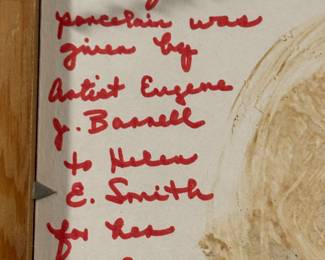 porcelain was
given by
Artist Eugene
J. Bannell
to Helen
E. Smith
for her